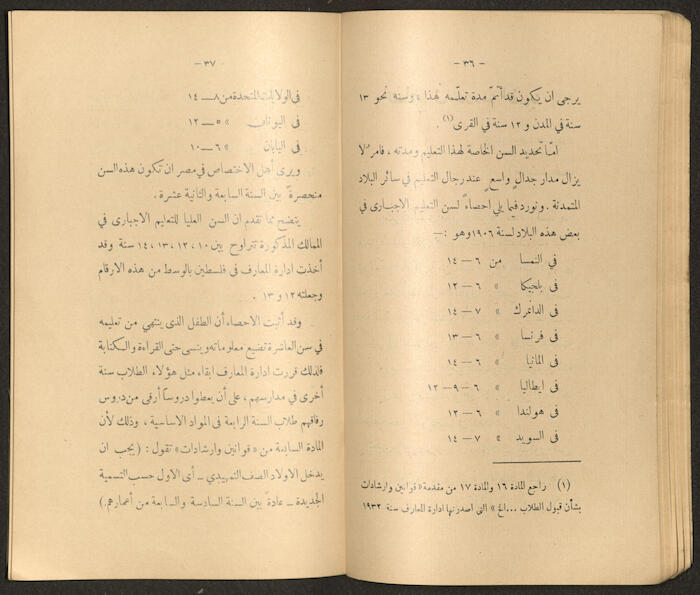 — ٣٦ —
يرجى ان يكون قد أتمّ مدة تعلّمه لهذا ؛ وسنه نحو ١٣
سنة في المدن و ١٢ سنة في القرى (١) .
امّا تحديد السن الخاصة لهذا التعليم ومدته ، فامر لا
يزال مدار جدالٍ واسعٍ عند رجال التعليم في سائر البلاد
المتمدنة . ونورد فيما يلي احصاءً لسن التعليم الاجباري في
بعض هذه البلاد لسنة ١٩٠٦ وهو :—
في النمسا من ٦ — ١٤
في بلجيكا » ٦ — ١٢
في الدانمرك » ٧ — ١٤
في فرنسا » ٦ — ١٣
في المانيا » ٦ — ١٤
في ايطاليا » ٦ — ٩ — ١٢
في هولندا » ٦ — ١٢
في السويد » ٧ — ١٤
(١) راجع المادة ١٦ والمادة ١٧ من مقدمة « قوانين وارشادات
بشأن قبول الطلاب ... الخ » التى اصدرتها ادارة المعارف سنة ١٩٣٢
— ٣٧ —
في الولايات المتحدة من ٨ — ١٤
في اليونان » ٥ — ١٢
في اليابان » ٦ — ١٠
ويرى أهل الاختصاص في مصر ان تكون هذه السن
منحصرةً بين السنة السابعة والثانية عشرة .
يتضح مما تقدم ان السن العليا للتعليم الاجبارى في
الممالك المذكورة تتراوح بين ١٠ ، ١٢ ، ١٣ ، ١٤ سنة وقد
أخذت ادارة المعارف في فلسطين بالوسط من هذه الارقام
وجعلته ١٢ و ١٣ .
وقد أثبت الاحصاء أن الطفل الذى ينتهي من تعليمه
في سن العاشرة تضيع معلوماته وينسى حتى القراءة والكتابة
فلذلك قررت ادارة المعارف ابقاء مثل هؤلاء الطلاب سنة
أخرى في مدارسهم ، على أن يعطوا دروساً أرقى من دروس
رفاقهم طلاب السنة الرابعة في المواد الاساسية ، وذلك لأن
المادة السابعة من « قوانين وارشادات » تقول : (يجب ان
يدخل الاولاد الصف التمهيدي — أى الاول حسب التسمية
الجديدة — عادةً بين السنة السادسة والسابعة من أعمارهم.)